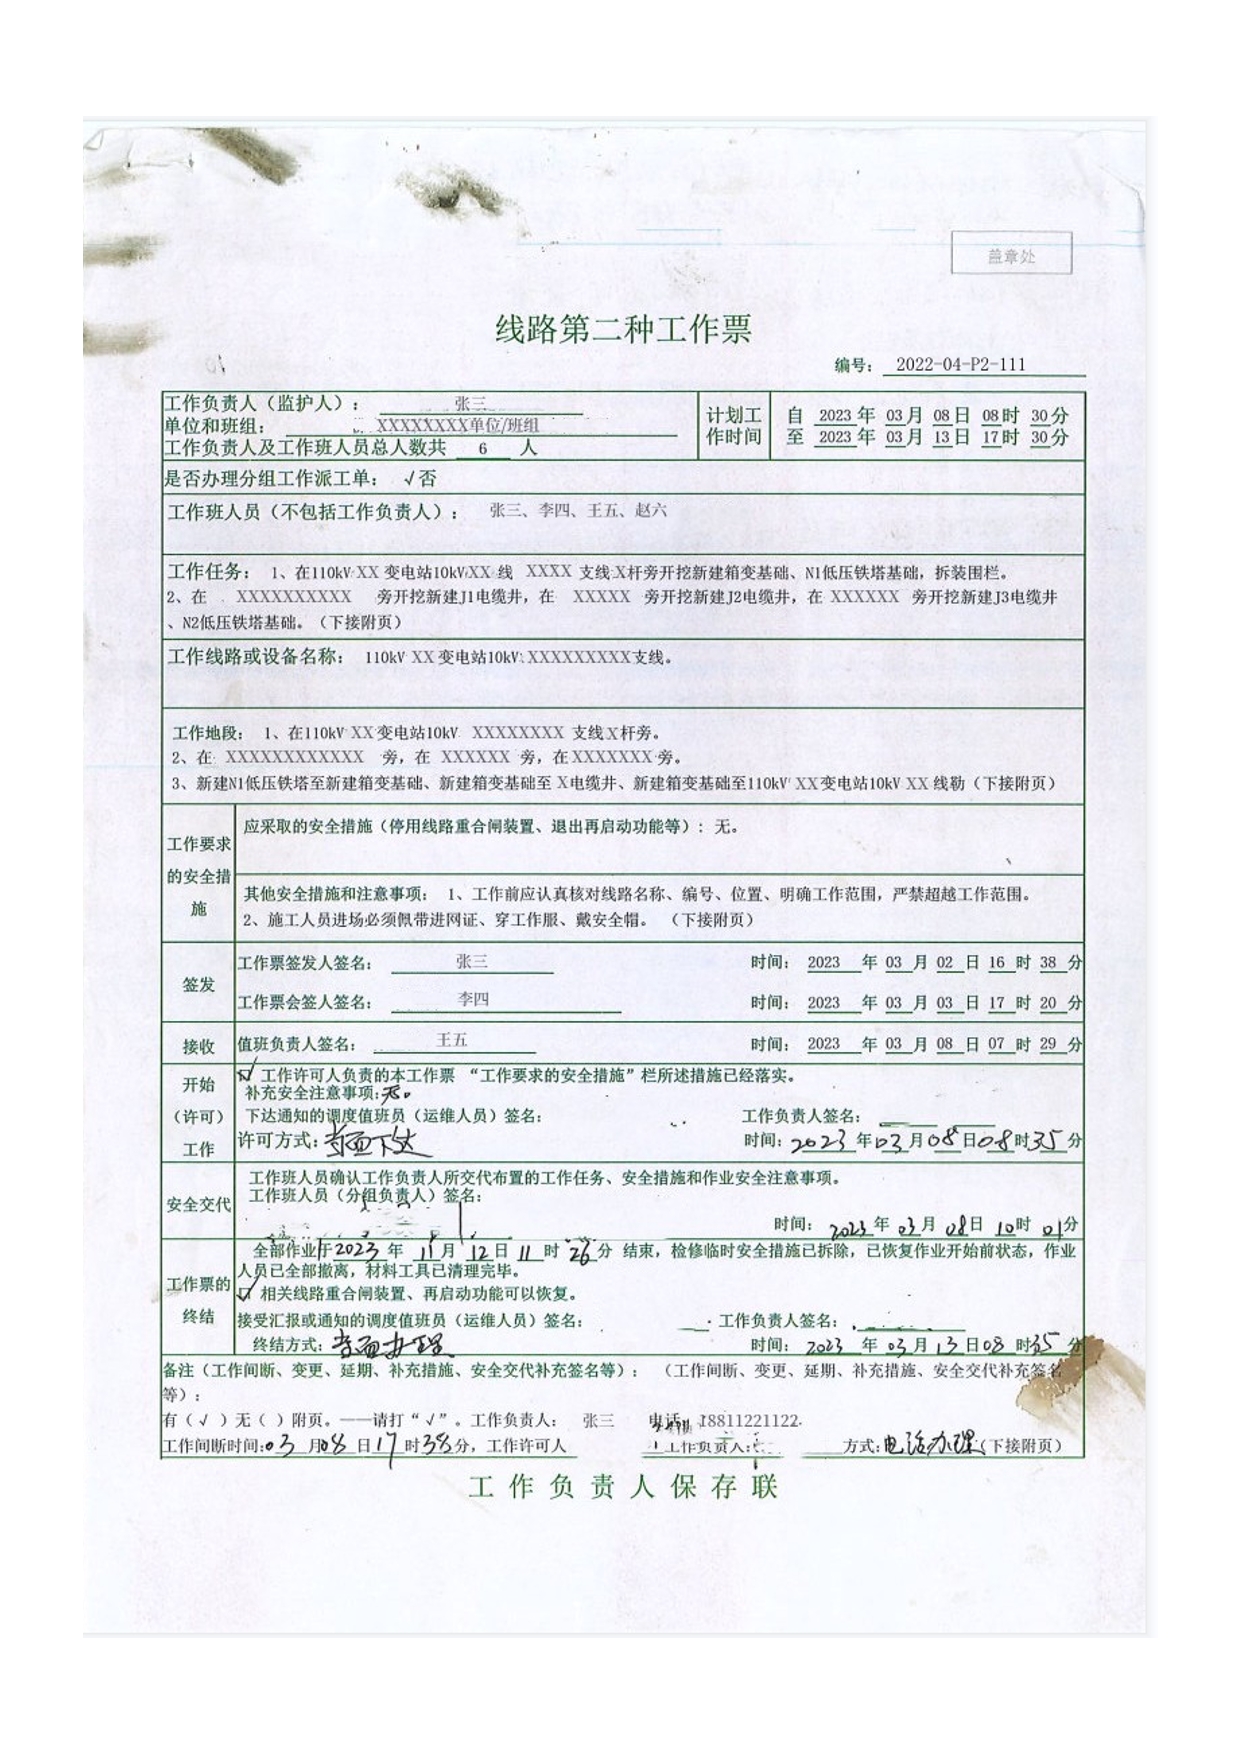 盖章处
线路第二种工作票
编号： 2022-04-P2-111
工作负责人（监护人）： 张三
单位和班组： XXXXXXXX单位/班组
工作负责人及工作班人员总人数共 6 人
计划工作时间
自 2023 年 03 月 08 日 08 时 30 分
至 2023 年 03 月 13 日 17 时 30 分
是否办理分组工作派工单： √否
工作班人员（不包括工作负责人）： 张三、李四、王五、赵六
工作任务： 1、在110kV XX 变电站10kV XX 线 XXXX 支线X杆旁开挖新建箱变基础、N1低压铁塔基础，拆装围栏。
2、在 XXXXXXXXXX 旁开挖新建J1电缆井，在 XXXXX 旁开挖新建J2电缆井，在 XXXXXX 旁开挖新建J3电缆井
、N2低压铁塔基础。（下接附页）
工作线路或设备名称： 110kV XX 变电站10kV XXXXXXXXX支线。
工作地段： 1、在110kV XX 变电站10kV XXXXXXXX 支线X杆旁。
2、在 XXXXXXXXXXXX 旁，在 XXXXXX 旁，在XXXXXXX 旁。
3、新建N1低压铁塔至新建箱变基础、新建箱变基础至 X电缆井、新建箱变基础至110kV XX变电站10kV XX 线勒（下接附页）
工作要求的安全措施
应采取的安全措施（停用线路重合闸装置、退出再启动功能等）：无。
其他安全措施和注意事项： 1、工作前应认真核对线路名称、编号、位置、明确工作范围，严禁超越工作范围。
2、施工人员进场必须佩带进网证、穿工作服、戴安全帽。（下接附页）
签发
工作票签发人签名： 张三 时间： 2023 年 03 月 02 日 16 时 38 分
工作票会签人签名： 李四 时间： 2023 年 03 月 03 日 17 时 20 分
接收
值班负责人签名： 王五 时间： 2023 年 03 月 08 日 07 时 29 分
开始（许可）工作
☑ 工作许可人负责的本工作票 “工作要求的安全措施”栏所述措施已经落实。
补充安全注意事项：无。
下达通知的调度值班员（运维人员）签名： 工作负责人签名：
许可方式：当面下达 时间：2023 年 03 月 08 日 08 时 35 分
安全交代
工作班人员确认工作负责人所交代布置的工作任务、安全措施和作业安全注意事项。
工作班人员（分组负责人）签名：
时间： 2023 年 03 月 08 日 10 时 01 分
工作票的终结
全部作业于2023 年 11 月 12 日 11 时 26 分 结束，检修临时安全措施已拆除，已恢复作业开始前状态，作业
人员已全部撤离，材料工具已清理完毕。
☑ 相关线路重合闸装置、再启动功能可以恢复。
接受汇报或通知的调度值班员（运维人员）签名： 工作负责人签名：
终结方式：当面办理 时间： 2023 年 03 月 13 日 08 时 35 分
备注（工作间断、变更、延期、补充措施、安全交代补充签名等）： （工作间断、变更、延期、补充措施、安全交代补充签名
等）：
有（√）无（ ）附页。——请打“√”。工作负责人： 张三 电话：18811221122
工作间断时间:03 月 08 日 17 时 38 分，工作许可人 工作负责人: 方式:电话办理(下接附页）
工作负责人保存联